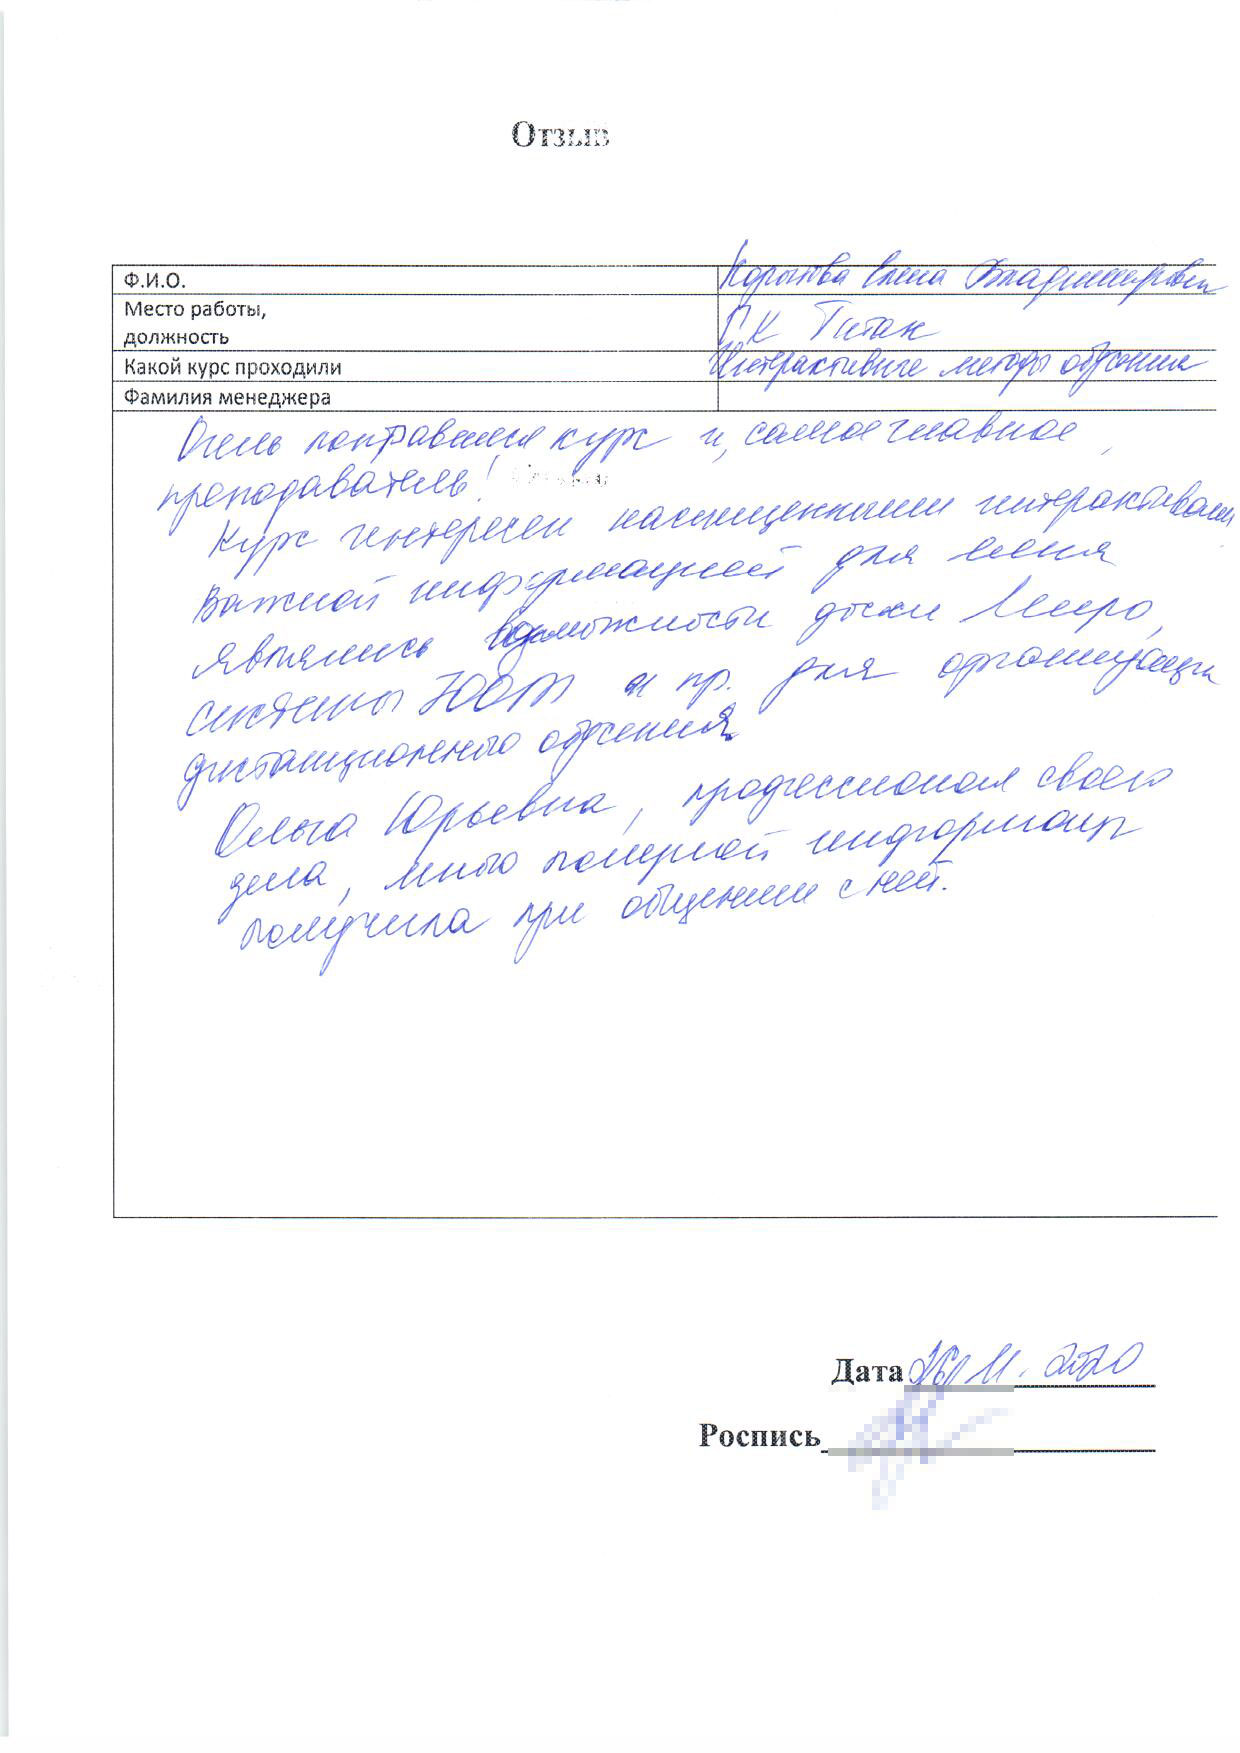 Отзыв
Ф.И.О. Корытова Елена Владимировна
Место работы,
должность ГК Титан
Какой курс проходили Интерактивные методы обучения
Фамилия менеджера
Очень понравился курс и, самое главное,
преподаватель!
Курс интересен насыщенными интерактивами
Важной информацией для меня
являлись возможности доски Миро,
системы ZOOM и пр. для организации
дистанционного обучения
Ольга Юрьевна, профессионал своего
дела, много полезной информации
получила при общении с ней.
Дата 26.11.2020
Роспись